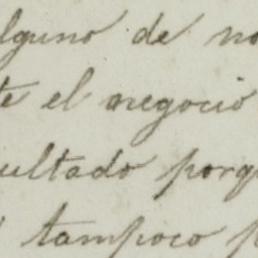 lguno de no
te el negocio
ultado porq
tampoco p